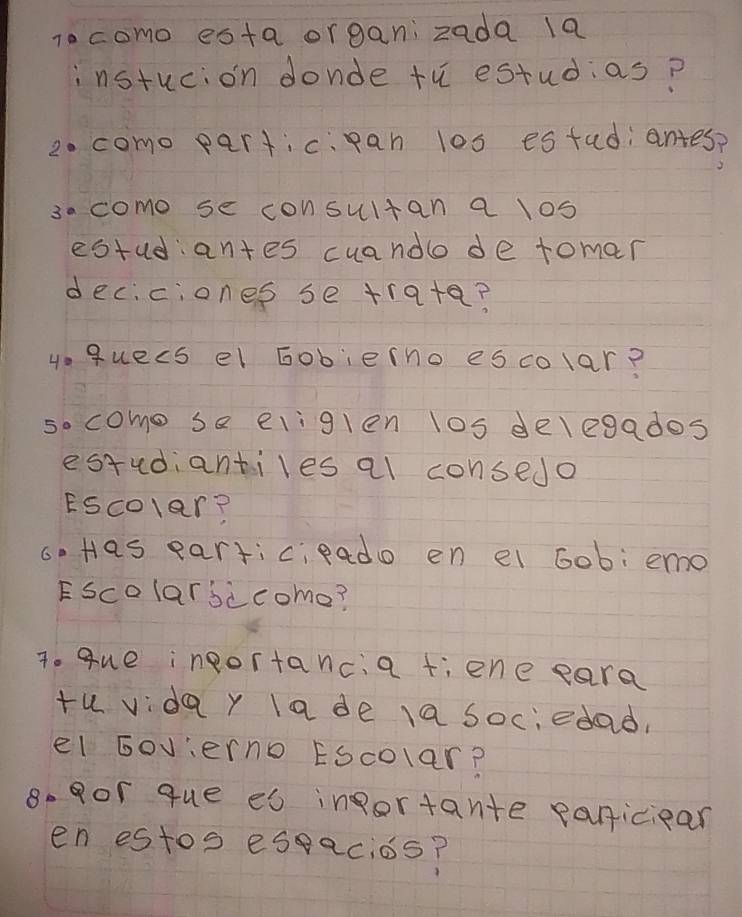 1. como esta organizada la
instución donde tú estudias?
2. como participan los estudiantes?
3. como se consultan a los
estudiantes cuando de tomar
deciciones se trata?
4. quees el Gobierno escolar?
5. como se eliglen los delegados
estudiantiles al consejo
Escolar?
6. Has participado en el Gobierno
Escolar si como?
7. que inportancia tiene para
tu vida y la de la sociedad,
el Govierno Escolar?
8. por que es inportante participar
en estos espaciós?